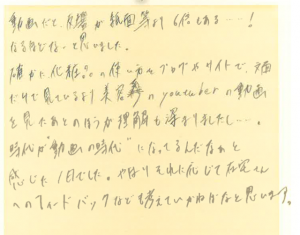 動画だと、反響が紙面等より6倍もある…!
なるほどなーと思いました。
確かに化粧品の使い方もブログやサイトで、画面
だけで見ているより美容系のyoutuberの動画
を見たあとのほうが理解も深まりましたし…。
時代が"動画の時代"になってるんだなぁと
感じた1日でした。やはりそれに応じてお客さん
へのフィードバックなども考えていかねばなと思います。